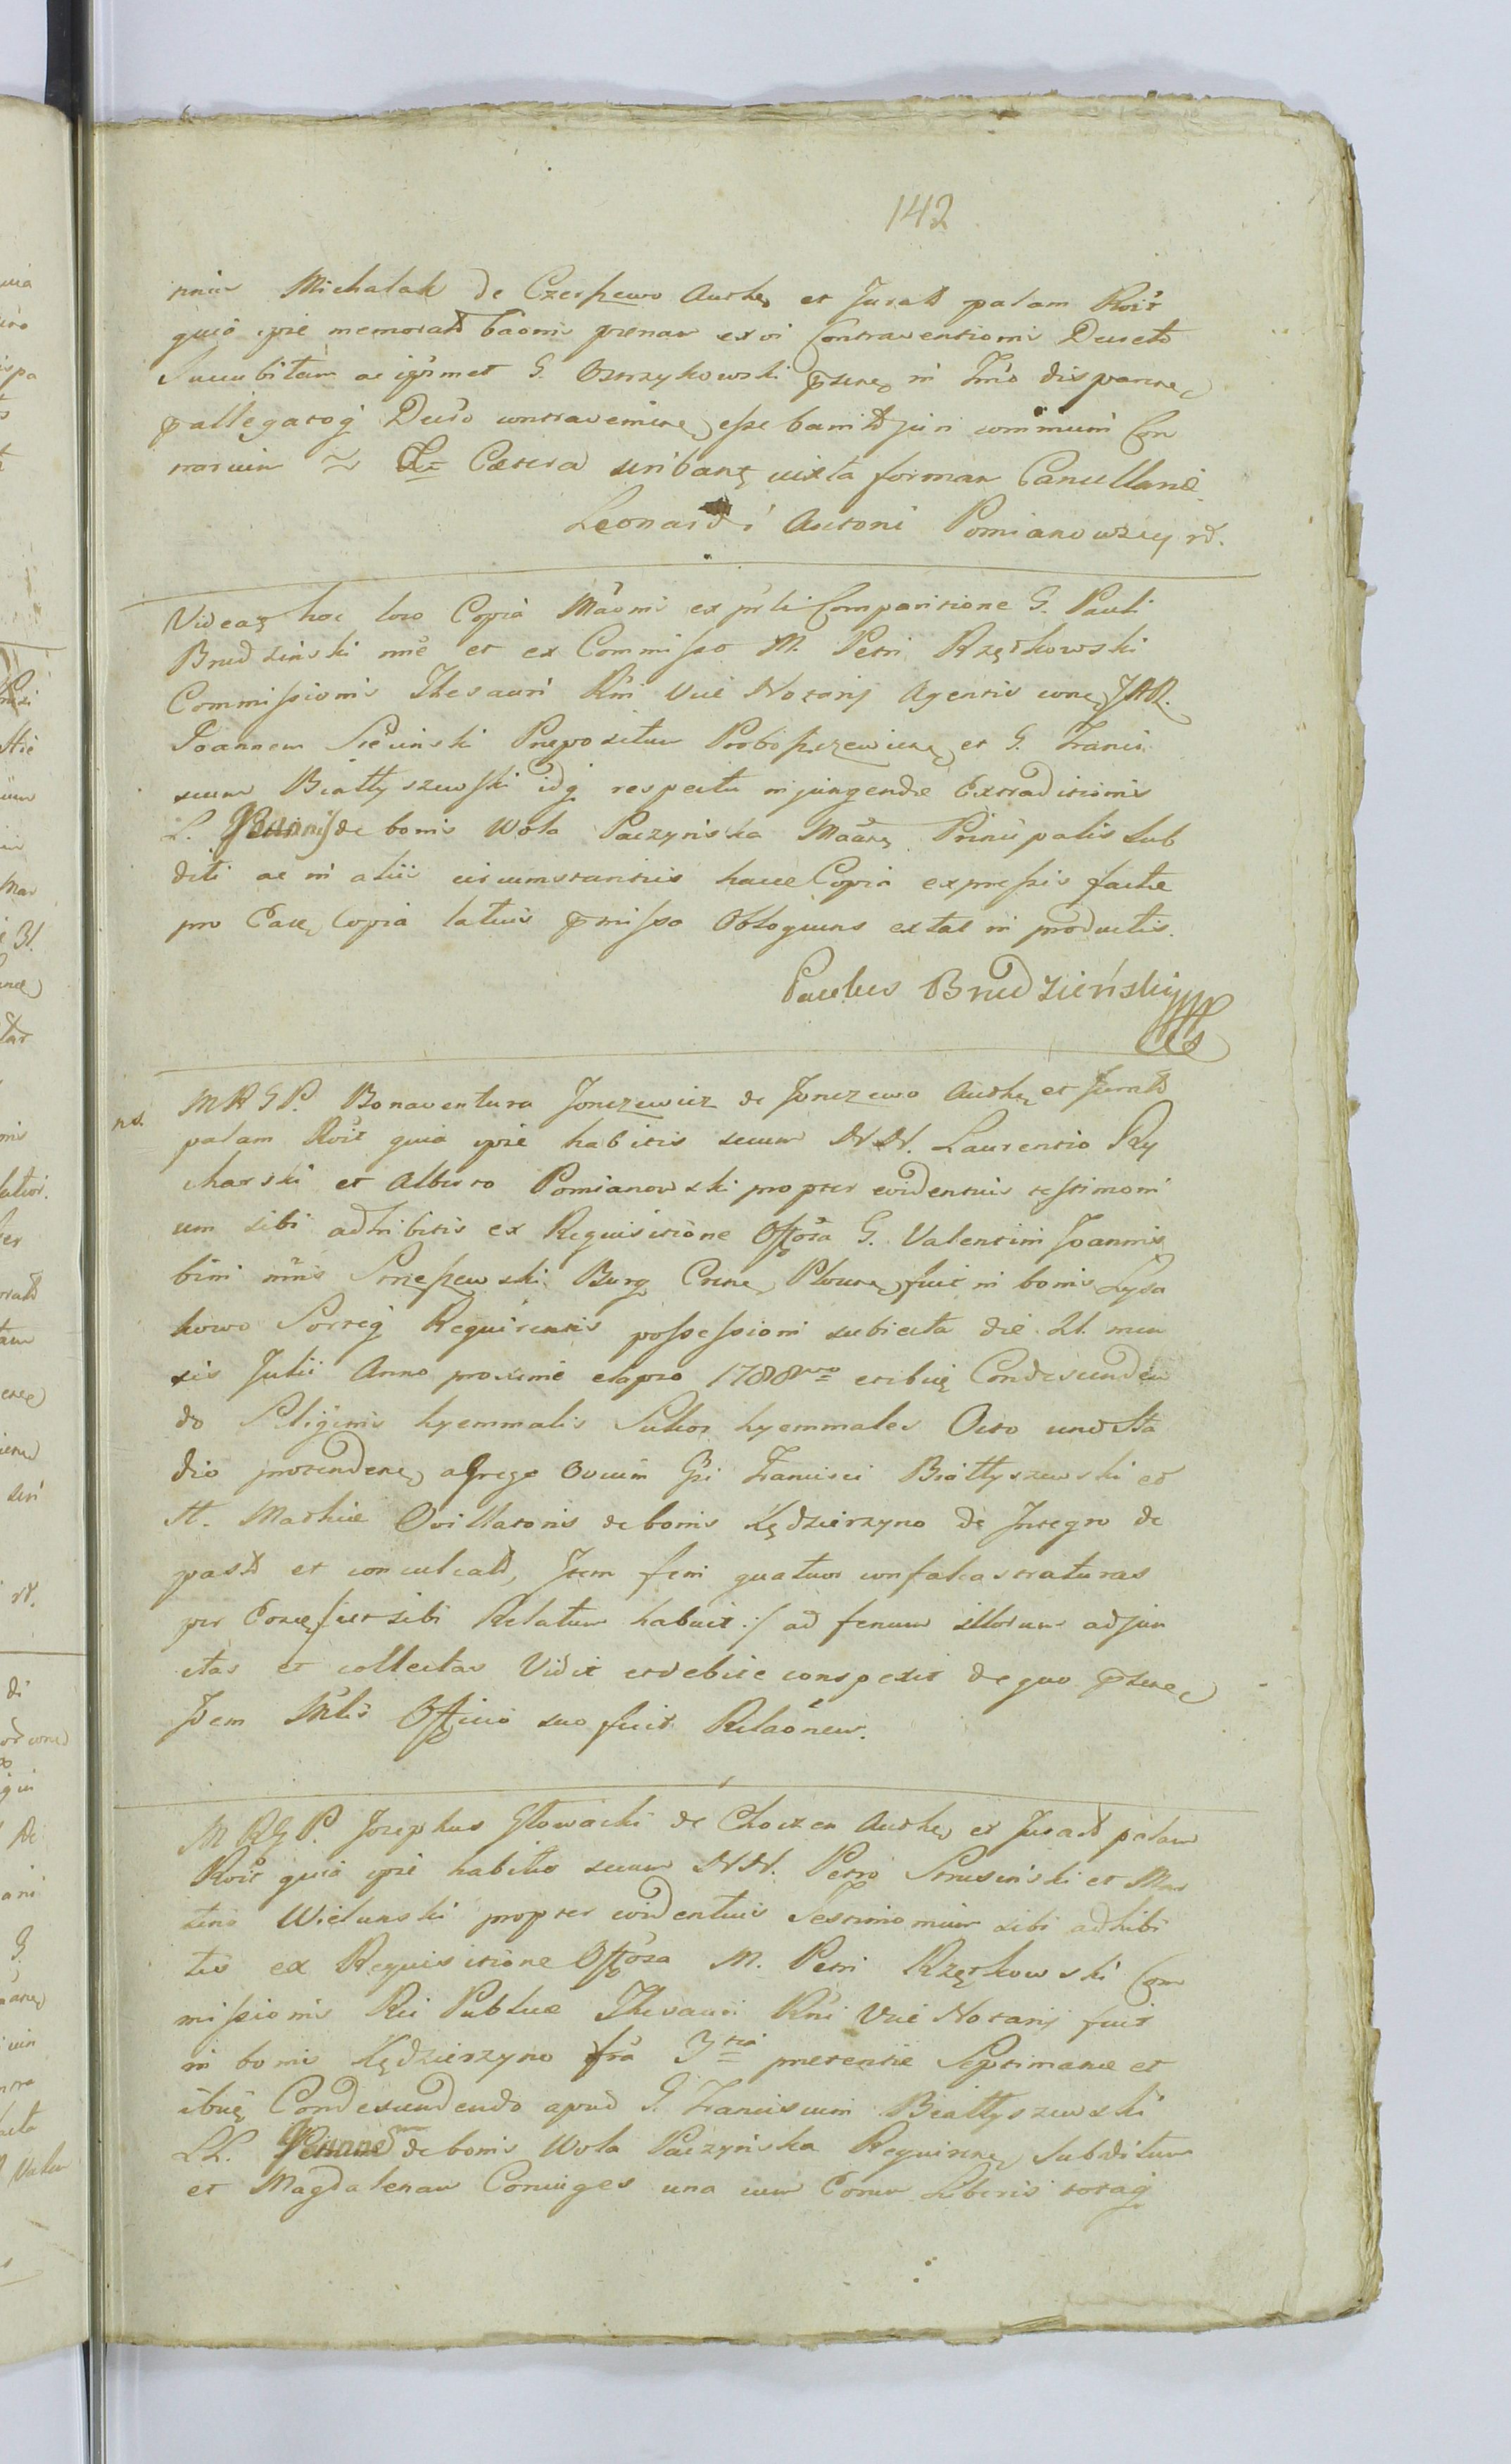 142
nniu Michalak de Czerszewo Authe et Juratt palam Rvit
quia ipse memoratt baoni pœnam ex vi Contraventionis Decreto
Succubitam ac ipsimet G. Ostrzykowski pstne in Trio disparene
pallegatoq Decto contravenine esse banittjuri communi Con
trarium La Cætera scribant iuxta formam Cancellariæ
Leonardi Antoni Pomianowscy rd.
Videaz hoc loco Copia Maoni ex prsli Comparitione G. Pauli
Brudzinski nne et ex Commisso M. Petri Rzętkowski
Commissionis Thesauri Rni Vue Notarij Agentis conę JAR.
Joannem Siecinski Præpositum Proboszczewicne et G. Franci
scum Białłyszewski idq respectu injungendæ Extraditionis
L. de bonis Wola Paczynska Maare Principalis Sub
diti ac in aliis circumstantiis hacce Copia expressis factæ
pro Eace Copia latius pmisso Obloquens extat in productis.
Paulus Brudzieński
nd. MRGP. Bonaventura Jonczewicz de Jonczewo Authe et Juratt
palam Rvit quia ipse habitis secum NN. Laurentio Ry
charski et Alberto Pomianowski propter evidentius testimoni
um sibi adhibitis ex Requisitione Offosa G. Valentini Joannis
bini nnis Strzeszewski Burg Crne Plocne fuit in bonis Lysa
kowo Sorteq Requirentis possessioni subiecta die 21. men
sis Julii Anno proxime elapso 1788vo etibuę Condescenden
do Siliginis hyemmalis Sulcos hyemmales Octo uno Sta
dio protendene a Grege Ovium Gsi Francisci Białłyszewski et
H. Mathiæ Ovillatoris de bonis Kędzierzyno de Integro de
pastt et conculcatt, Item feni quatuor confalcastraturas
per Eosnę sicut sibi Relatum habuit :/ ad fenum illorum adjun
ctas et collectas Vidit etdebite conspexit de quo pstne
Idem Mtlis Officio suo fecit Rlaonem.
MRGP. Josephus Głowacki de Choczen Authe et Juratt palam
Rvit quia ipse habitis secum NN. Petro Strusinski et Mar
tino Wielunski propter evidentius Testimonium sibi adhibi
tis ex Requisitione Offosa M. Petri Rzętkowski Com
missionis Rei Publicæ Thesauri Rni Vue Notarij fuit
in bonis Kędzierzyno fra 3tia præsentis Septimanæ et
ibuę Condescendendo apud G. Franciscum Białłyszewski
LL. de bonis Wola Paczynska Requirne Subditum
et Magdalenam Coniuges una cum Eorum Liberis totaq